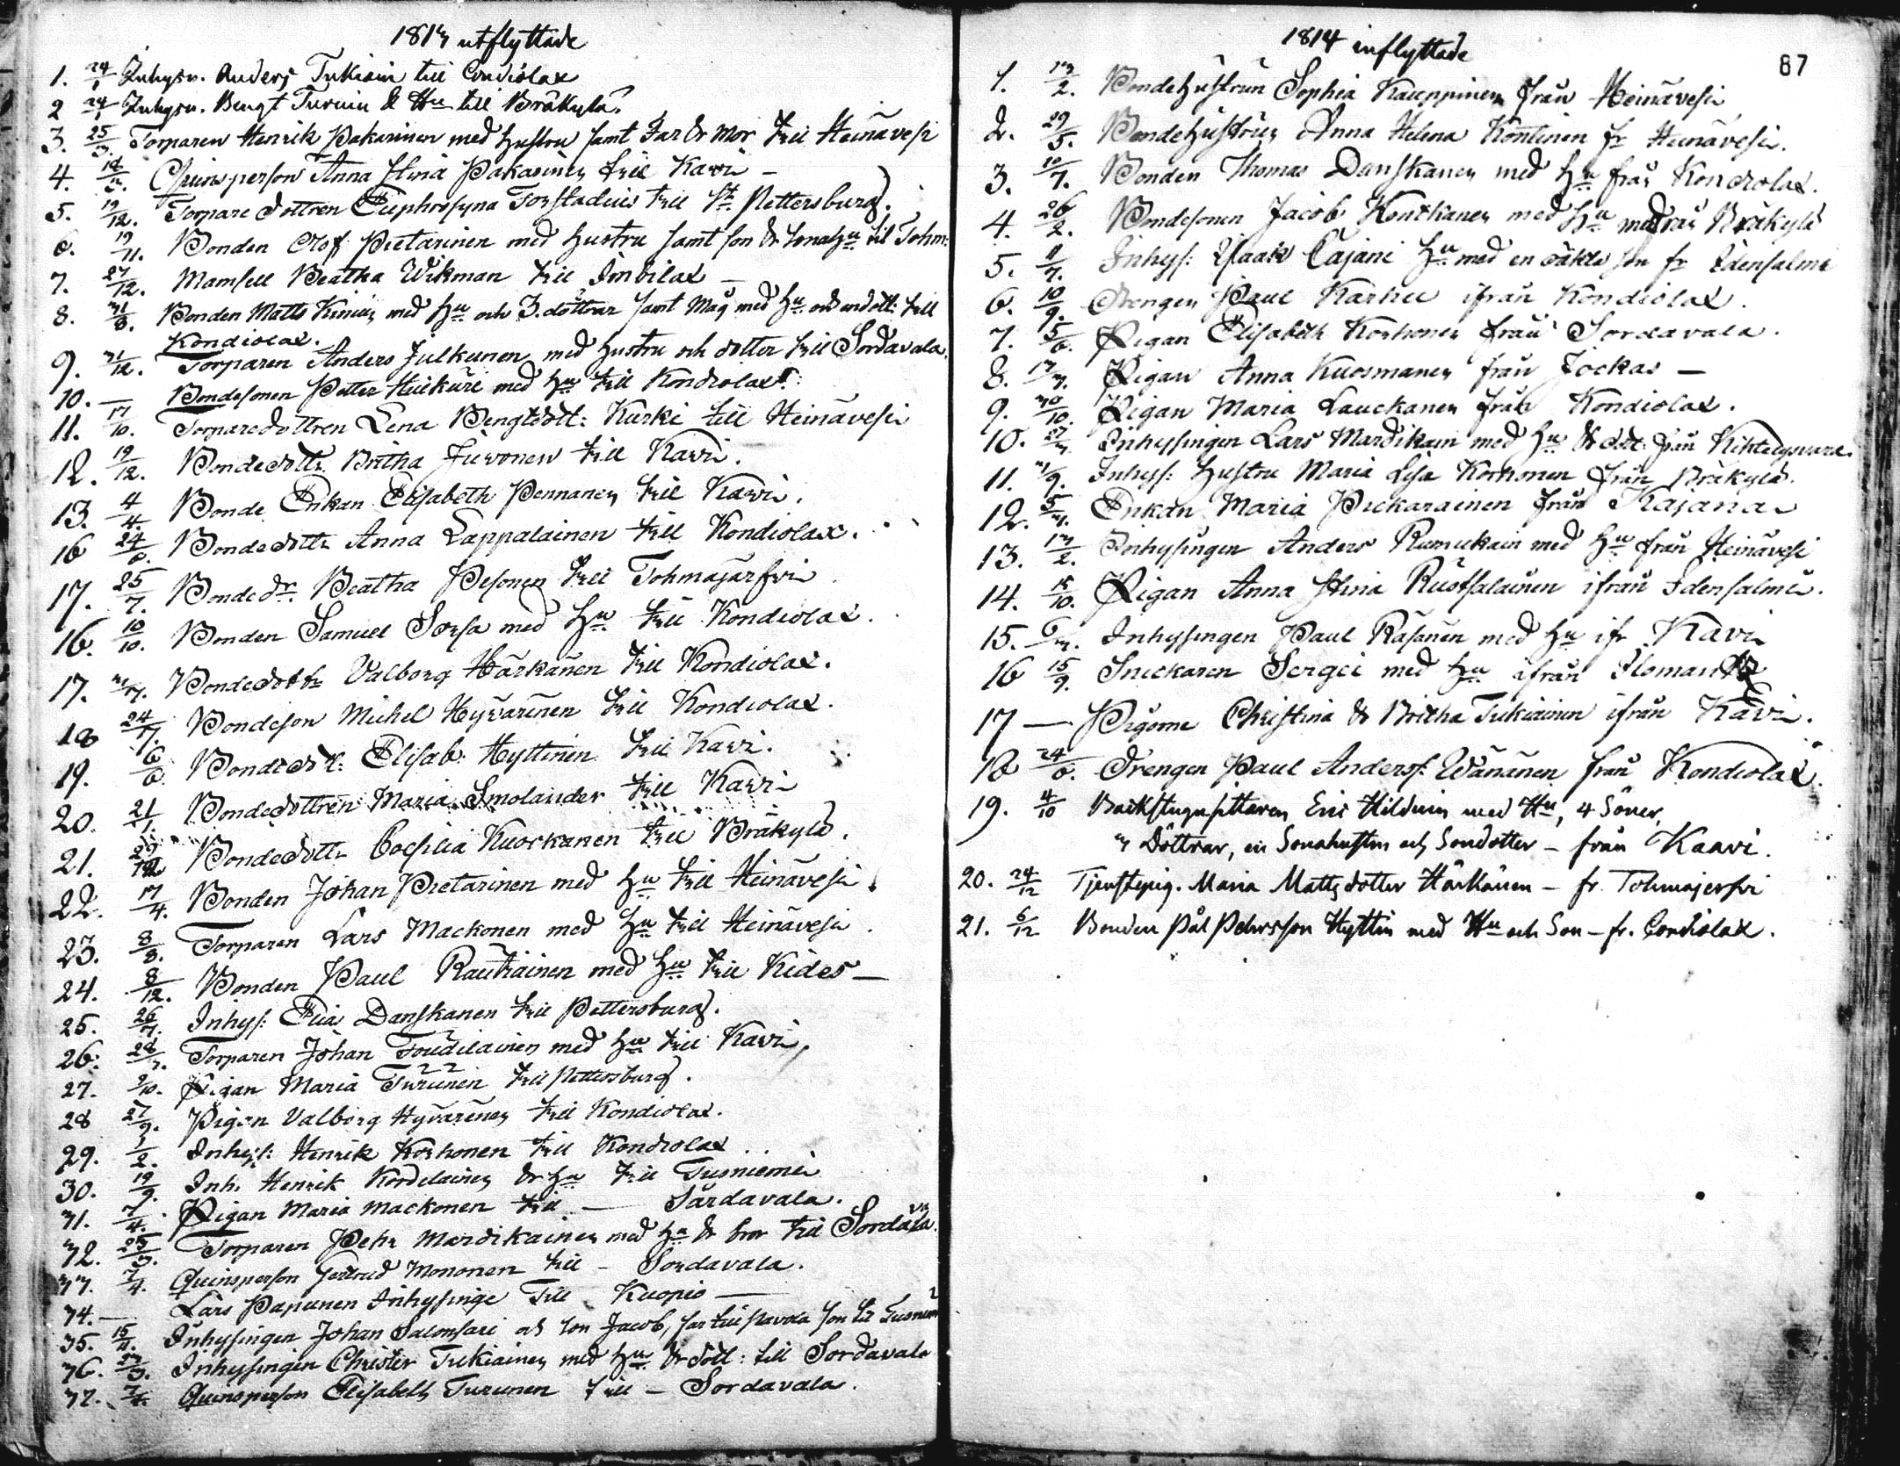 1813 utflyttade
1. 24/1 Inhysn. Anders Tukiain till Condiolax
2 24/1 Inhysn. Bengt Turuin & Hu till Bräkylä
3. 25/3. Torparen Henrik Pakarinen med hustru samt Far & Mor till Heinävesi
4. 18/3. Qvinsperson Anna Stina Pakarinen till Kavi –
5. 19/12. Torpare dottren Euphrosyna Forstadius till St Pettersburg.
6. 19/11. Bonden Olof Pietarinen med hustru samt son & sonahu till Tohm:
7. 27/12. Mamsell Beatha Wikman till Imbilax –
8. 31/8. Bonden Matts Kinin med hu och 3. döttrar samt Måg med hu och till
Kondiolax.
9. 31/12. Torparen Anders Julkunen med hustru och dotter till Sordavala.
10. — Bondesonen Petter med hu till Kondiolax.
11. 17/10. Torparedottren Lena Bengtsdott: Kurki till Heinävesi
12. 19/12. Bondedottr Britha Juvonen till Kavi.
13. 4/4. Bonde Enkan Elisabeth Pennanen till Kavi.
16 24/6. Bondedottr Anna Lappalainen till Kondiolax.
17. 25/7. Bonde dr. Beatha Pesonen till Tohmajärfvi
16. 10/10. Bonden Samuel Sorsa med hu till Kondiolax.
17. 31/7. Bondedottr Valborg Härkänen till Kondiolax.
18 24/7. Bondeson Michel Hyvärinen till Kondiolax.
19. 6/6. Bondedot: Elisab: Hyttinen till Kavi.
20. 21/1. Bondedottren Maria Smolander till Kavi
21. Bondedottr Coecilia Kuorkanen till Bräkylä.
22. 17/4. Bonden Johan Pietarinen med hu till Heinävesi.
23. 8/3. Torparen Lars Mackonen med hu till Heinävesi.
24. 8/12. Bonden Paul Rautiainen med hu till Kides –
25. 26/7. Inhys: Elia Danskanen till Pettersburg.
26. 28/3. Torparen Johan Toudilainen med hu till Kavi.
27. 9/10. Pigan Maria Turunen till Pettersburg.
28 27/9. Pigan Valborg Hyvärinen till Kondiolax.
29. 1/2. Inhys: Henrik Korhonen till Kondiolax
30. 19/9. Inh. Henrik Kordelainen & hu till Tusniemi
31. 7/4. Pigan Maria Mackonen till — Sårdavala.
32. 25/3. Torparen Pehr Mardikainen med hu & bror till Sordavala.
33. 7/4. Qvinsperson Gertrud Mononen till – Sordavala.
34. — Lars Papunen Inhysinge Till Kuopio —
35. 15/4. Inhysingen Johan Salonsari och son Jacob, till
36. 23/3. Inhysingen Christer Tukiainen med hu & dott: till Sordavala
37. 7/4. Qvinsperson Elisabeth Turunen till – Sordavala.
87
1814 inflyttade
1. 13/2. Bondehustrun Sophia Kauppinen från Heinävesi
2. 29/5. Bondehustrun Anna Helena Kontinen fr Heinävesi.
3. 10/7. Bonden Thomas Danskanen med hu från Kondiolax.
4. 26/2. Bondesonen Jacob Kontkanen med hu från Bräkylä
5. 8/7. Inhys: Isaak Cajani hu med en oäkta son fr Idensalmi
6. 10/9. Drengen Paul Karhu ifrån Kondiolax.
7. 5/6. Pigan Elisabeth Korhonen från Sordavala.
8. 17/3. Pigan Anna Kuosmanen från Jockas –
9. 30/10. Pigan Maria Lauckanen från Kondiolax.
10. 27/3. Inhysingen Lars Mardikain med hu & dot från
11. 31/9. Inhys: Hustru Maria Lisa Korhonen från Bräkylä.
12. 5/3. Enkan Maria Pickarainen från Kajana
13. 13/2. Inhysingen Anders Rumukain med hu från Heinävesi
14. 15/10. Pigan Anna Stina Ruotsalainen ifrån Idensalmi.
15. 6/3. Inhysingen Paul Räsänen med hu ifr Kavi
16 15/9. Snickaren Sergei med hu ifrån Ilomants
17 — Pigorne Christina & Britha Tukiainen ifrån Kavi.
18 24/6. Drengen Paul Anders: Wänänen från Kondiolax.
19. 4/10 Backstugusittaren Eric Hilduin med Hu, 4 Söner,
3 Döttrar, en Sonahustru och Sondotter – från Kaavi.
20. 24/12 Tjenstepig. Maria Mattsdotter Härkönen – fr. Tohmajerfvi
21. 6/12 Bonden Pål Pehrsson Hyttin med Hu och Son – fr. Condiolax.